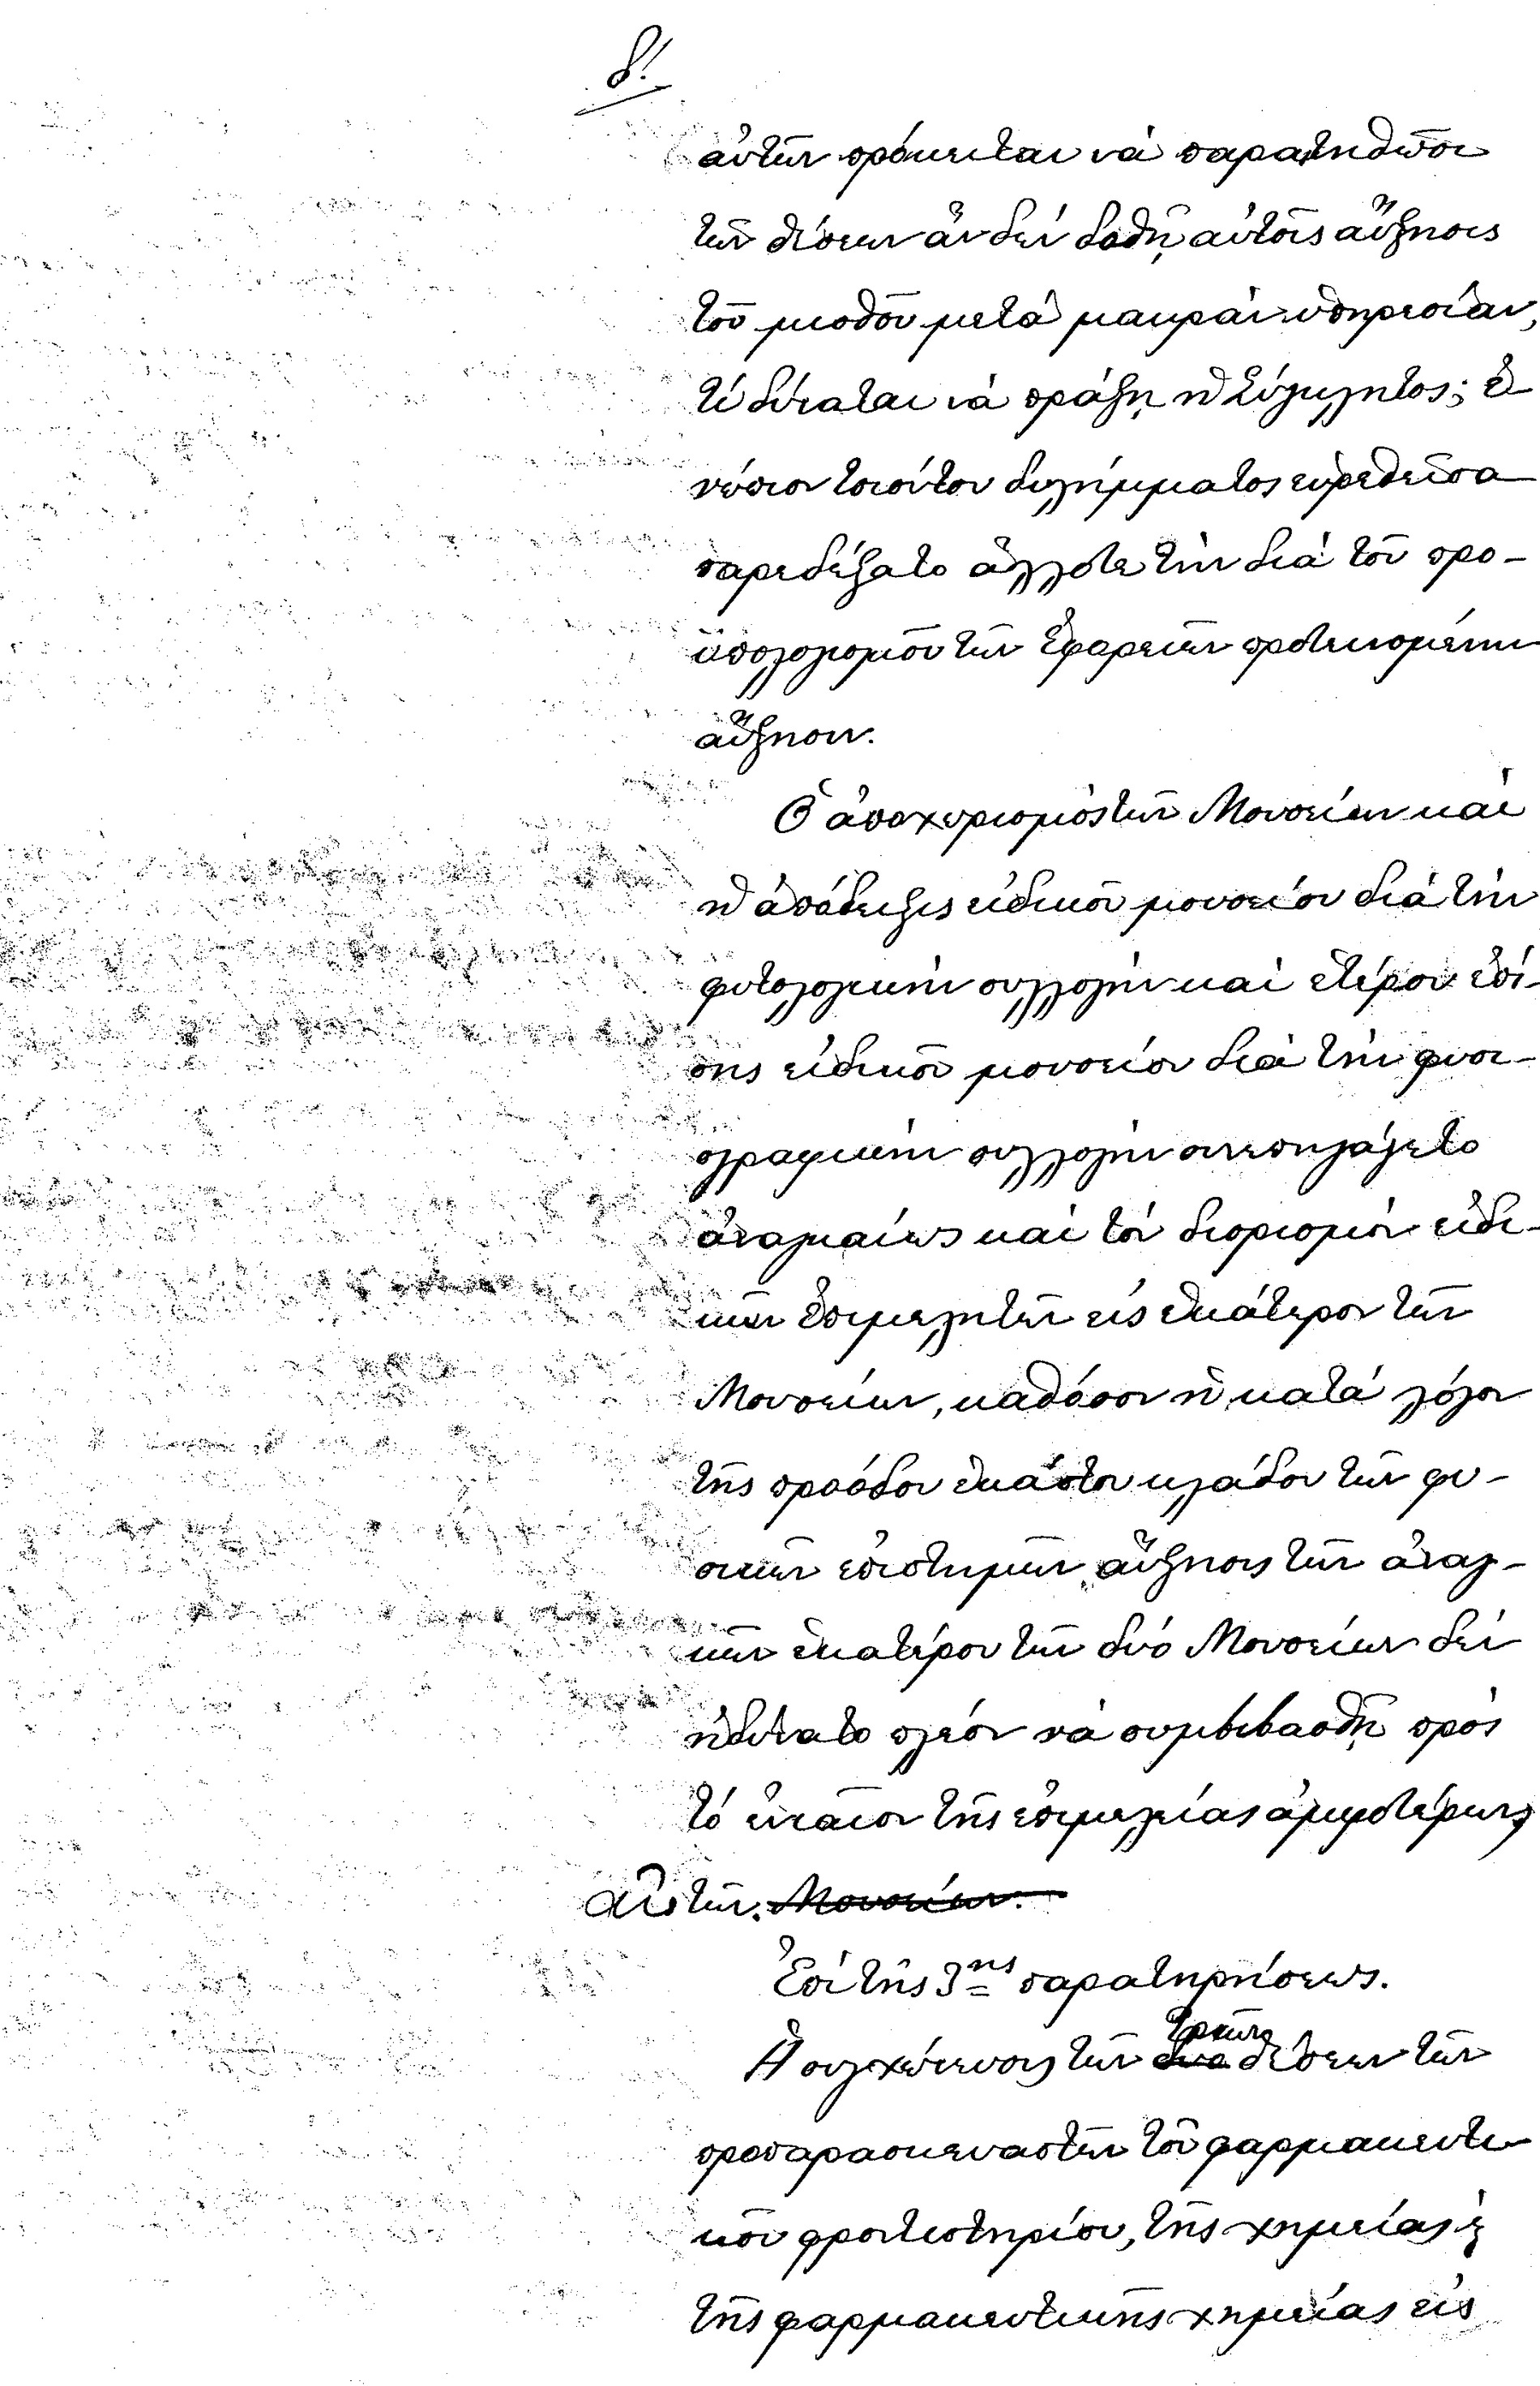 δ!
αὐτῶν πρόκειται νὰ παραιτηθῶσι
τῶν θέσεων ἂν δὲν δοθῇ αὐτοῖς αὔξησις
τοῦ μισθοῦ μετὰ μακρὰν ὑπηρεσίαν,
τί δύναται νὰ πράξῃ ἡ Σύγκλητος; ἐ-
νώπιον τοιούτου διλήμματος εὑρεθεῖσα
παρεδέξατο ἄλλοτε τὴν διὰ τοῦ προ-
ϋπολογισμοῦ τῶν Ἐφορειῶν προτεινομένην
αὔξησιν.
Ὁ ἀποχωρισμὸς τῶν Μουσείων καὶ
ἡ ἀπόδειξις εἰδικοῦ μουσείου διὰ τὴν
φυτολογικὴν συλλογὴν καὶ ἑτέρου ἐπί-
σης εἰδικοῦ μουσείου διὰ τὴν φυσι-
ογραφικὴν συλλογὴν συνεπήγαγετο
ἀναγκαίως καὶ τὸν διορισμὸν εἰδι-
κῶν ἐπιμελητῶν εἰς ἑκάτερον τῶν
Μουσείων, καθόσον ἡ κατὰ λόγον
τῆς προόδου ἑκάστου κλάδου τῶν φυ-
σικῶν ἐπιστημῶν αὔξησις τῶν ἀναγ-
κῶν ἑκατέρου τῶν δύο Μουσείων δὲν
ἠδύνατο πλέον νὰ συμβιβασθῇ πρὸς
τὸ ἑνιαῖον τῆς ἐπιμελείας ἀμφοτέρων
αὐτῶν. Μουσείων.
Ἐπὶ τῆς 3ης παρατηρήσεως.
Ἡ συγχώνευσις τῶν δύο τριῶν θέσεων τῶν
προπαρασκευαστῶν τοῦ φαρμακευτι-
κοῦ φροντιστηρίου, τῆς χημείας ϗ
τῆς φαρμακευτικῆς χημείας εἰς